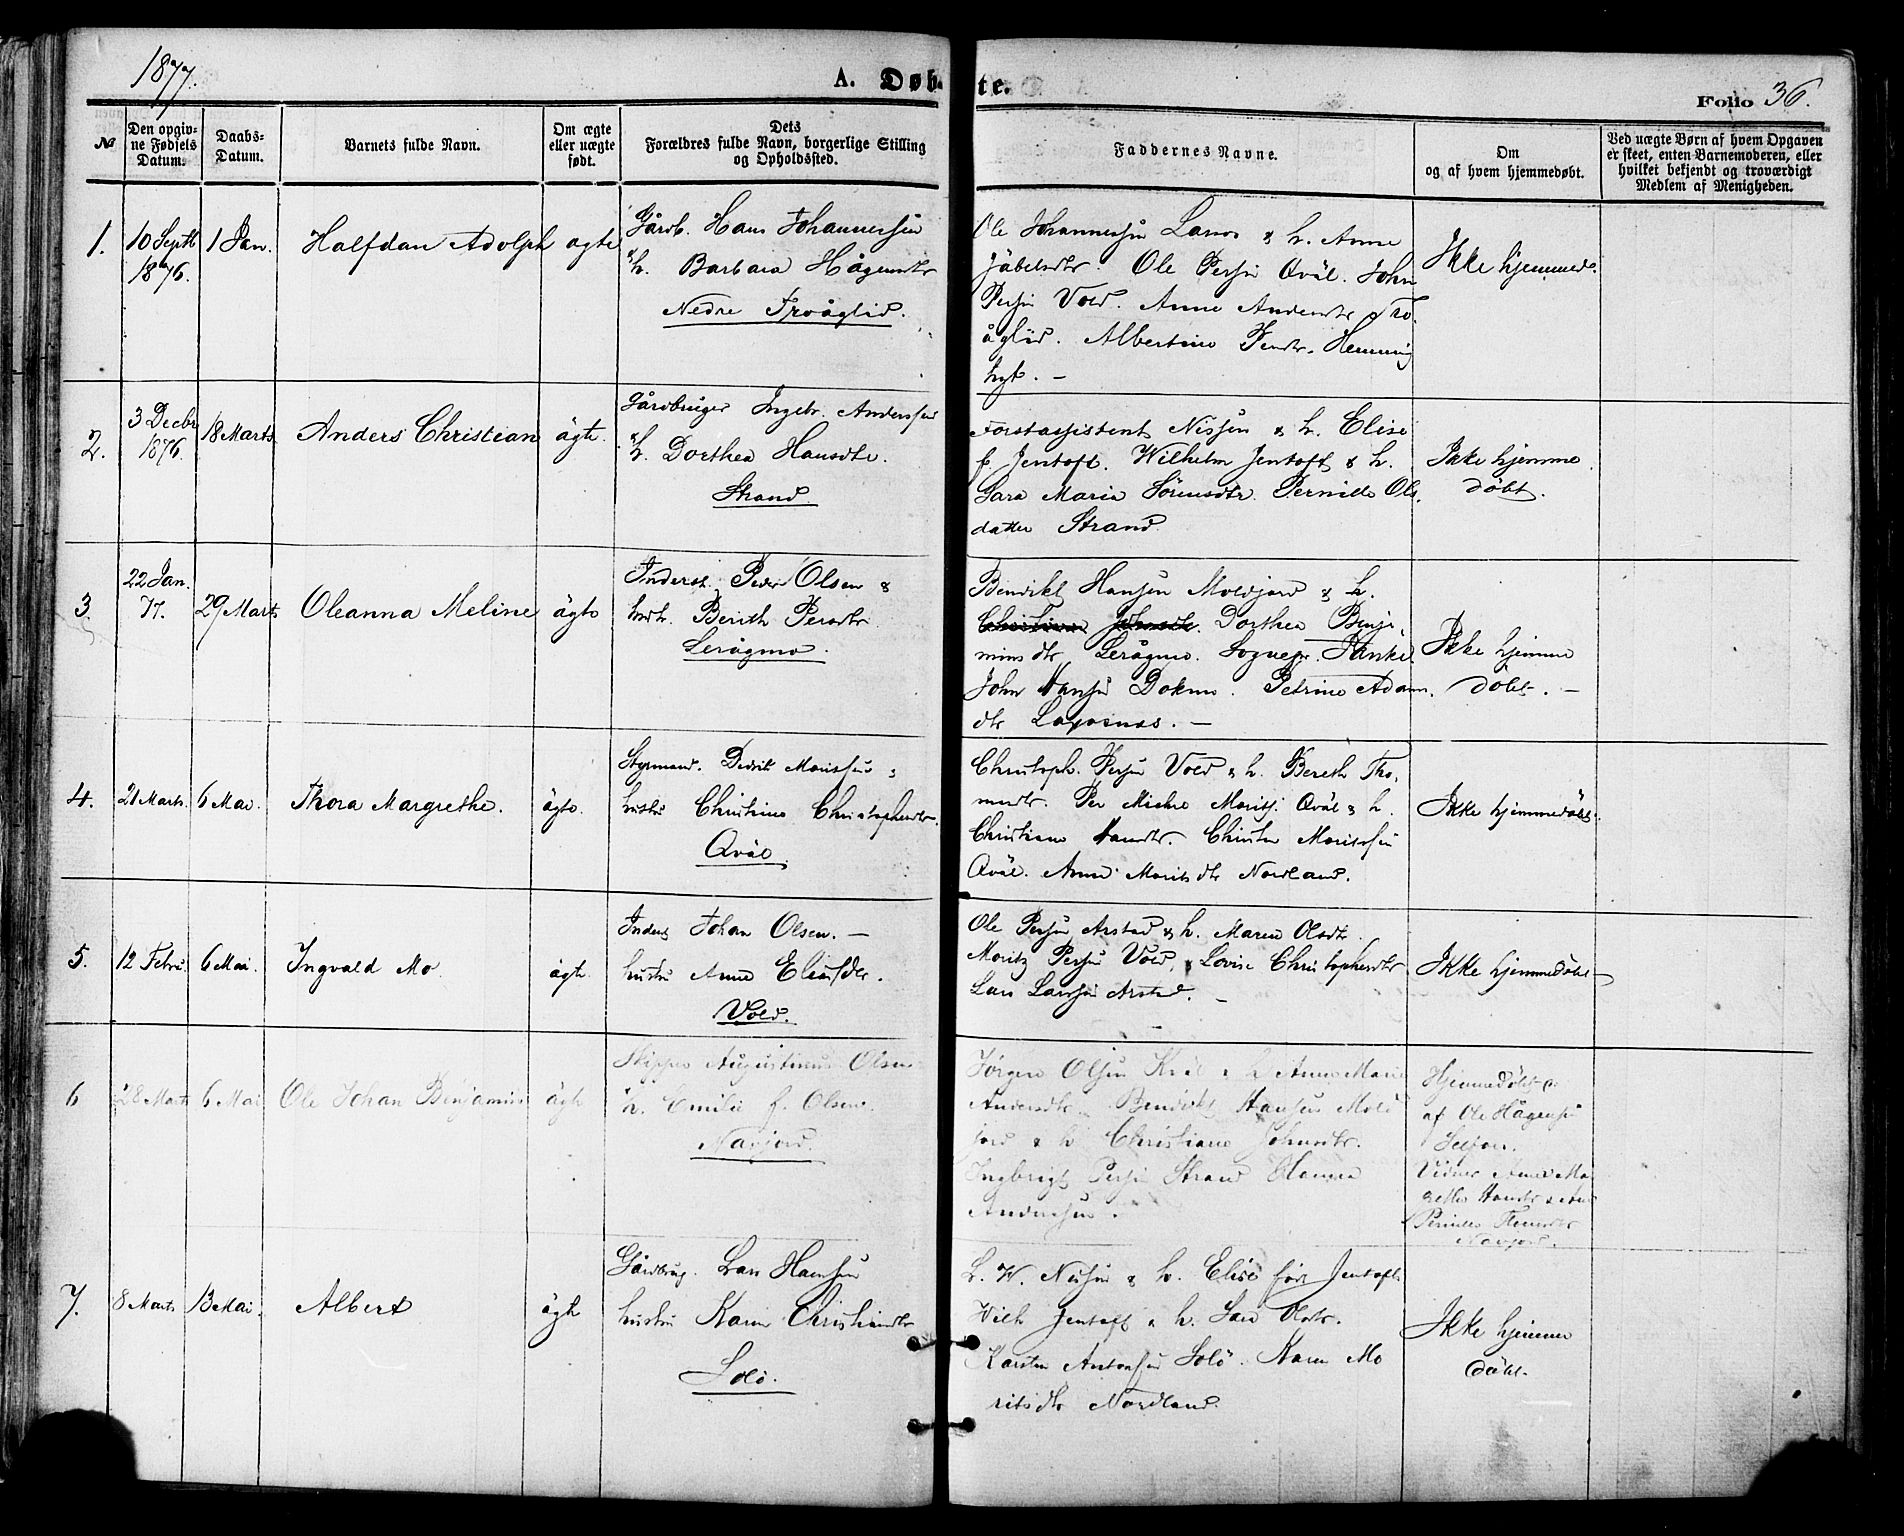 1877.
A. Døbte.
Folio 36.
No
Den opgiv-
ne Fødsels
Datum.
Daabs-
Datum.
Barnets fulde Navn.
Om ægte
eller uægte
født.
Dets
Forældres fulde Navn, borgerlige Stilling
og Opholdssted.
Faddernes Navne.
Om
og af hvem hjemmedøbt.
Ved uægte Børn af hvem Opgaven
er skeet, enten Barnemoderen, eller
hvilket bekjendt og troværdigt
Medlem af Menigheden.
1.
10 Septb
1876.
1 Jan.
Halfdan Adolph
ægte
Gårdb. Hans Johannessen
& h. Barbara Hågensdtr
Nedre Troåglid.
Ole Johannessen & h. Anne
Ole Persen Qväl. John
Persen Vold. Anne Andersdtr Tro-
åglid. Albertine Pedrsdtr. Henning
Ikke hjemmed.
2.
3 Decbr
1876.
18 Marts
Anders Christian
ägte.
Gårdbruger Ingebr. Anderssen
& h. Dorthea Hansdtr.
Strand.
Forstassistent Nissen & h. Elise
f. Jentoft. Wilhelm Jentoft & h.
Sara Maria Sörensdtr. Pernille Ols-
datter Strand.
Ikke hjemme
döbt.
3.
22 Jan.
77.
29 Marts
Oleanna Meline
ägte
Inderst. Peder Olsen &
hustr. Berith Persdtr
LeråGmo.
Bendikt Hansen Moldjord & h.
Christiane Johnsdtr. Dorthea Benja-
mins dtr Leråmo. Sognepr. Hanke.
John Hansen Dokmo. Petrine Adam.
dtr Laxosnes. —
Ikke hjemme
döbt. —
4.
21 Marts.
6 Mai.
Thora Margrethe.
ägte.
Styrmand. Didrik Moritssen &
hustru Christine Christophersdtr.
Qväl.
Christoph. Persen Vold & h. Bereth Tho-
masdtr. Per Michal Moritss. Qväl & h.
Christiane Hansdtr. Christen Moritssen
Qväl. Anne Morits dtr Nordland.
Ikke hjemmedöbt.
5.
12 Febru.
6 Mai.
Ingvald Mo.
ägte
Inders. Johan Olsen. —
hustru Anne Eliasdtr.
Vold.
Ole Persen Arstad & h. Maren Olsdtr.
Moritz Persen Vold, & Lovise Christophersdtr
Lars Larssen Arstad. —
Ikke hjemmedöbt
6
28 Marts
6 Mai
Ole Johan Benjamin
ägte
Skipper Augustinus Olsen
& h. Emilie f. Olsen.
Navjord.
Jörgen Olsen & h Anne Marie
Andersdtr. Bendikt Hansen Mold
jord & h. Christiane Johnsdtr.
Ingbrigt Persen Strand Hanna
Anderssen.
Hjemmedöbt
af Ole Hågensen
Vidner Anne Ma
grethe Hansdtr & Ane
Pernille
Navjord.
7.
8 Marts
13 Mai.
Albert
ägte
Gårdbrug. Lars Hansen
hustru Karen Christiansdtr
Solö.
L. W. Nissen & h. Elise föd Jentoft.
Wilh Jentoft & h. Sara Olsdtr.
Karsten Antonsen Solö. Karen Mo
rits dtr Nordland.
Ikke hjemme
döbt.